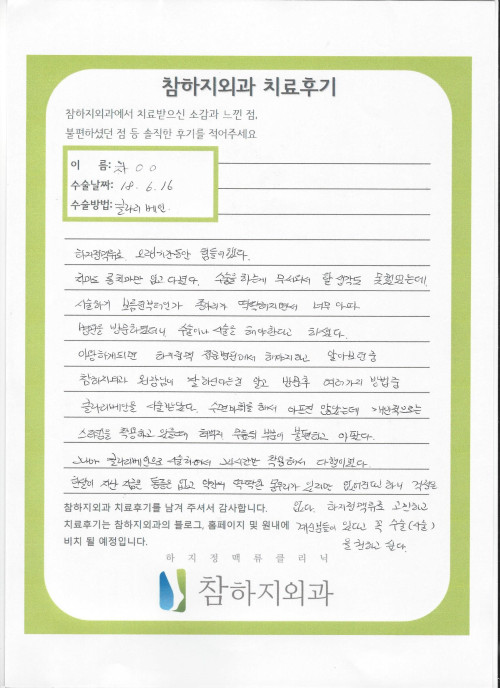 참하지외과 치료후기
참하지외과에서 치료받으신 소감과 느낀 점,
불편하셨던 점 등 솔직한 후기를 적어주세요
이 름: 차 ○○
수술날짜: 18. 6. 16
수술방법: 클라리베인
하지정맥류로 오랜기간동안 힘들어했다.
치마도 롱치마만 입고 다녔다. 수술을 하는게 무서워서 할 생각도 못했었는데,
시술하기 보름전부터인가 종아리가 딱딱해지면서 너무 아파
병원을 방문하였더니 수술이나 시술을 해야한다고 하였다.
이왕하게되면 하지정맥 전문병원에서 해야지하고 알아보던중
참하지외과 원장님이 잘하신다는걸 알고 방문후 여러가지 방법중
클라리베인을 시술받았다. 수면마취를 해서 아프진 않았는데
스타킹을 착용하고 있을때 허벅지 무릎뒤 부분이 불편하고 아팠다.
그나마 클라리베인으로 시술하여서 24시간만 착용해서 다행이었다.
한달이 지난 지금은 통증은 없고 약간의 딱딱한 몽우리가 있지만 없어진다 하니 걱정은
없다. 하지정맥류로 고민하고
계신분들이 있다면 꼭 수술(시술)
을 권하고 싶다.
참하지외과 치료후기를 남겨 주셔서 감사합니다.
치료후기는 참하지외과의 블로그, 홈페이지 및 원내에
비치 될 예정입니다.
하지정맥류클리닉
참하지외과